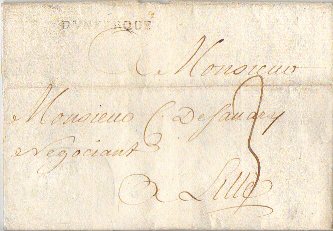 DUNKERQUE
A Monsieur
Monsieur C
Negociant
A Lille